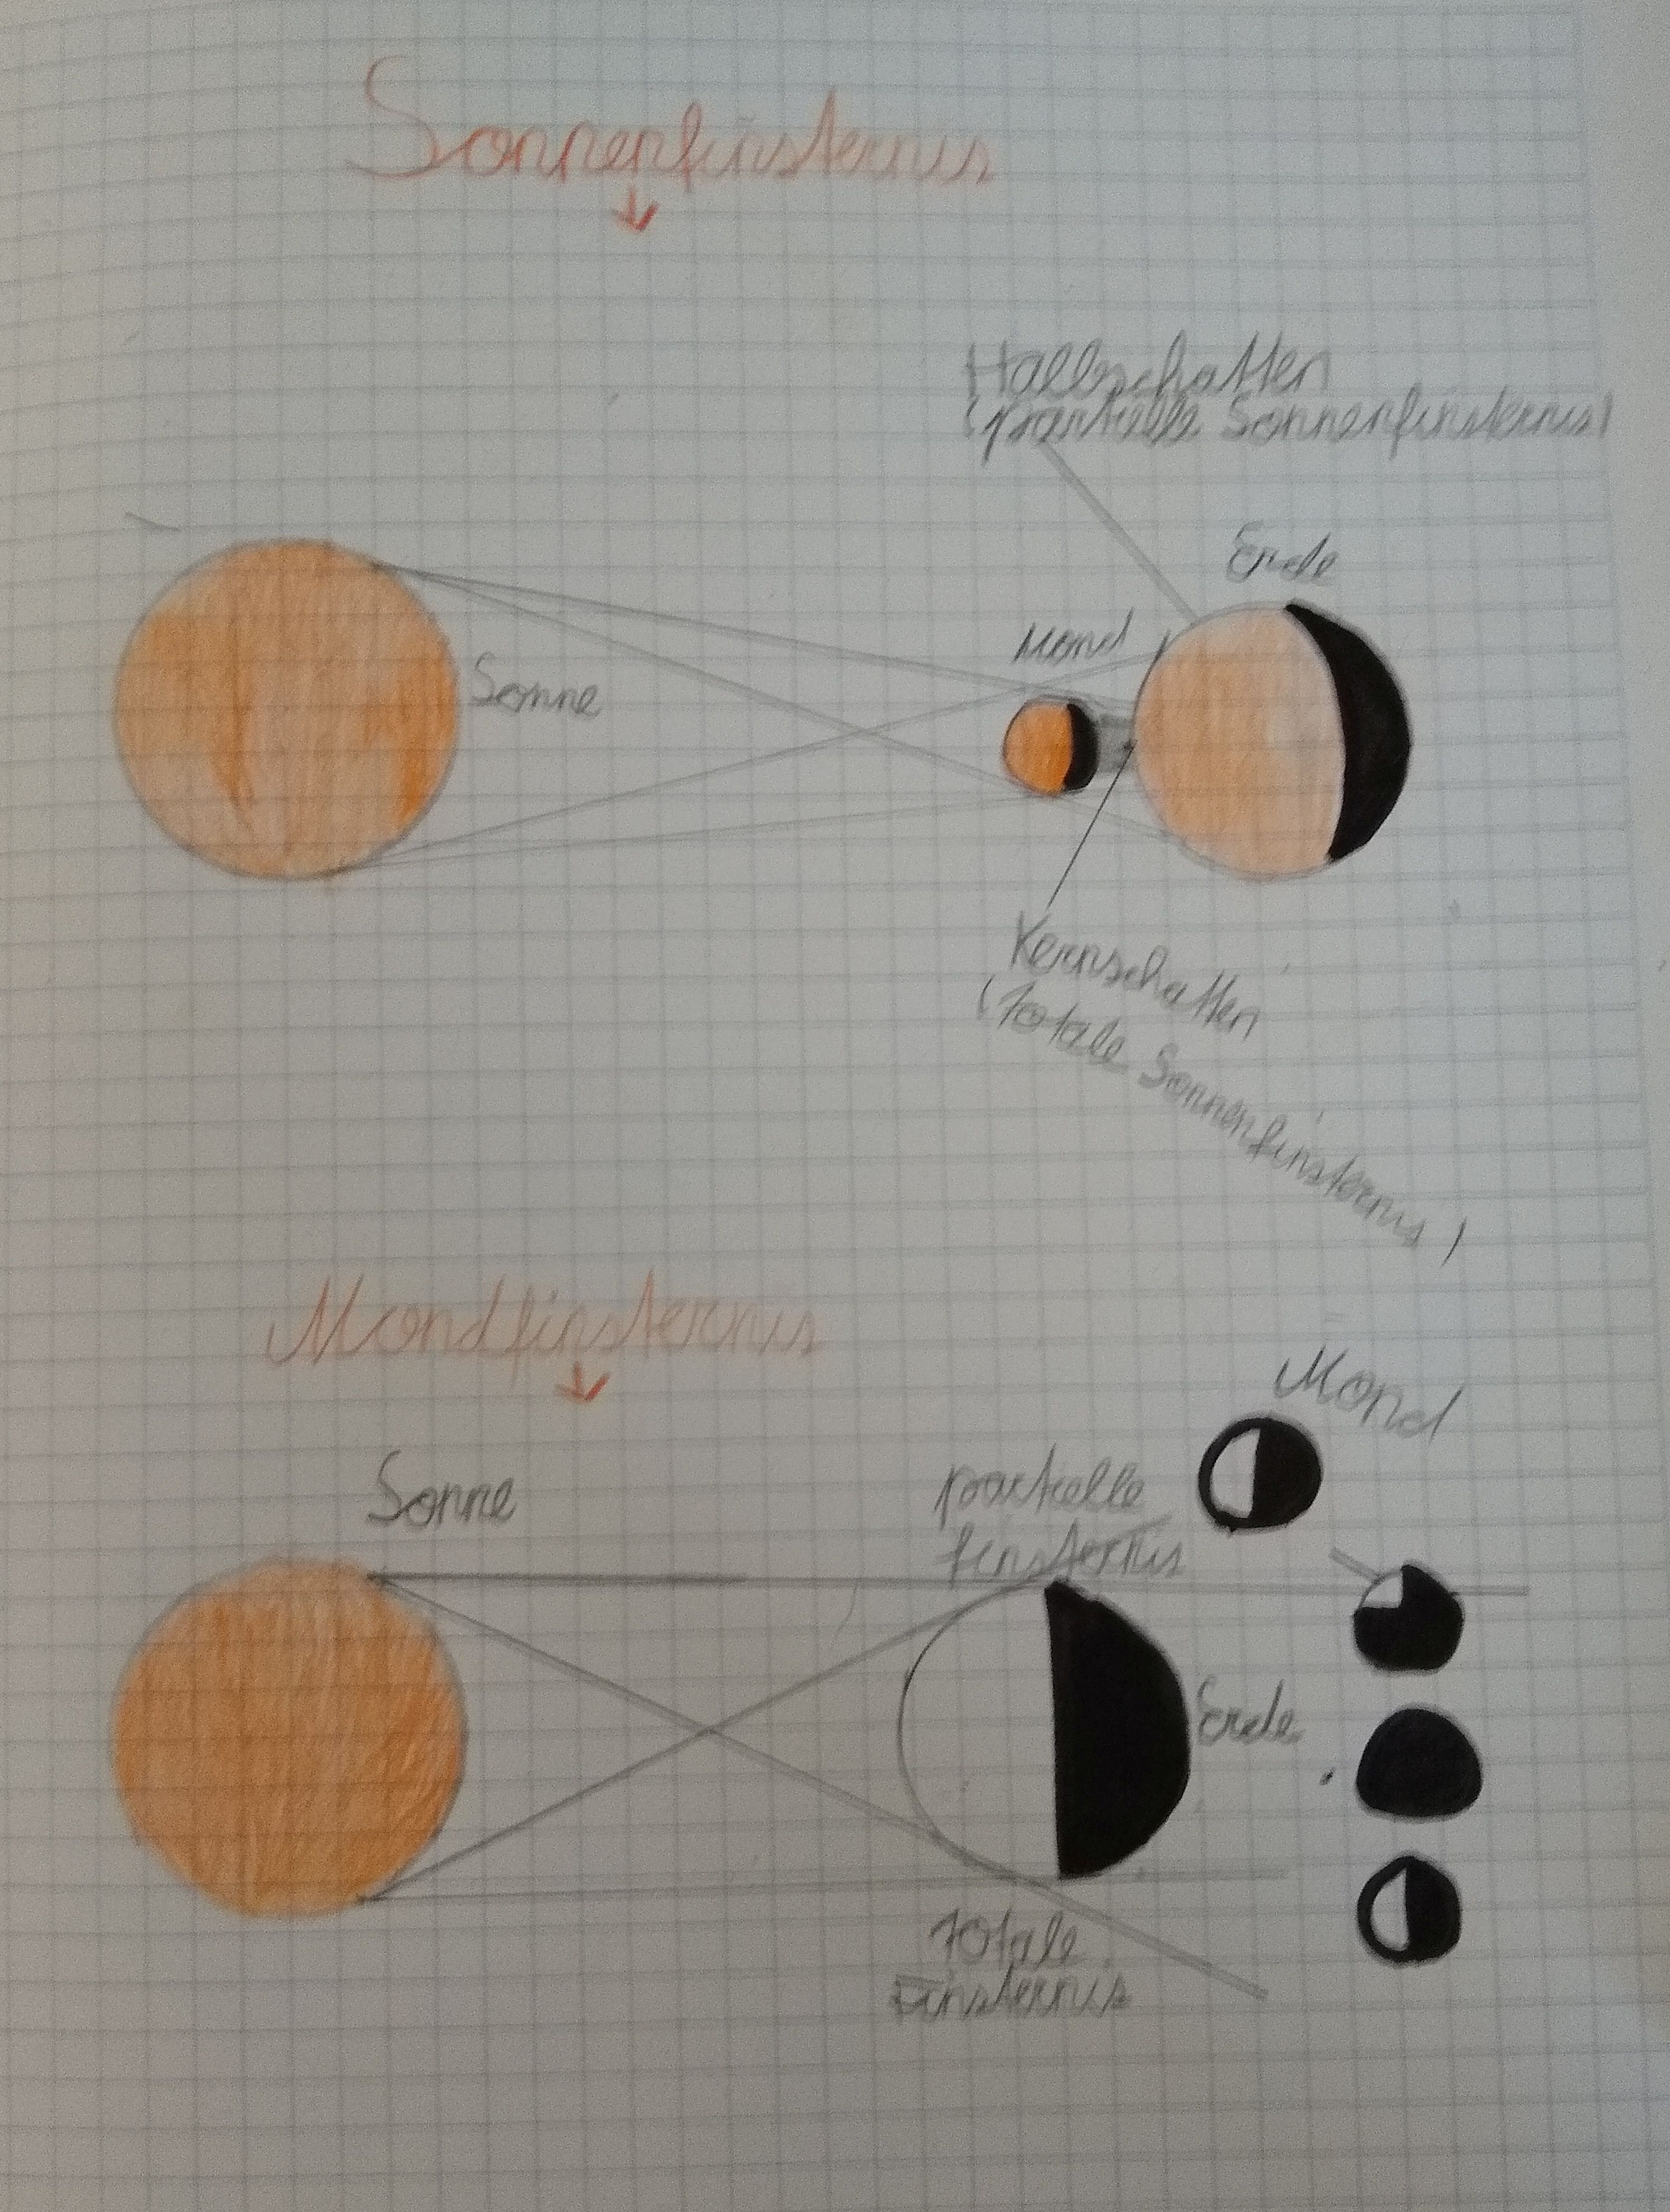 Sonnenfinsternis
Halbschatten
(partielle Sonnenfinsternis)
Erde
Mond
Sonne
Kernschatten
(Totale Sonnenfinsternis)
Mondfinsternis
Mond
Sonne
partielle
finsternis
Erde
Totale
Finsternis